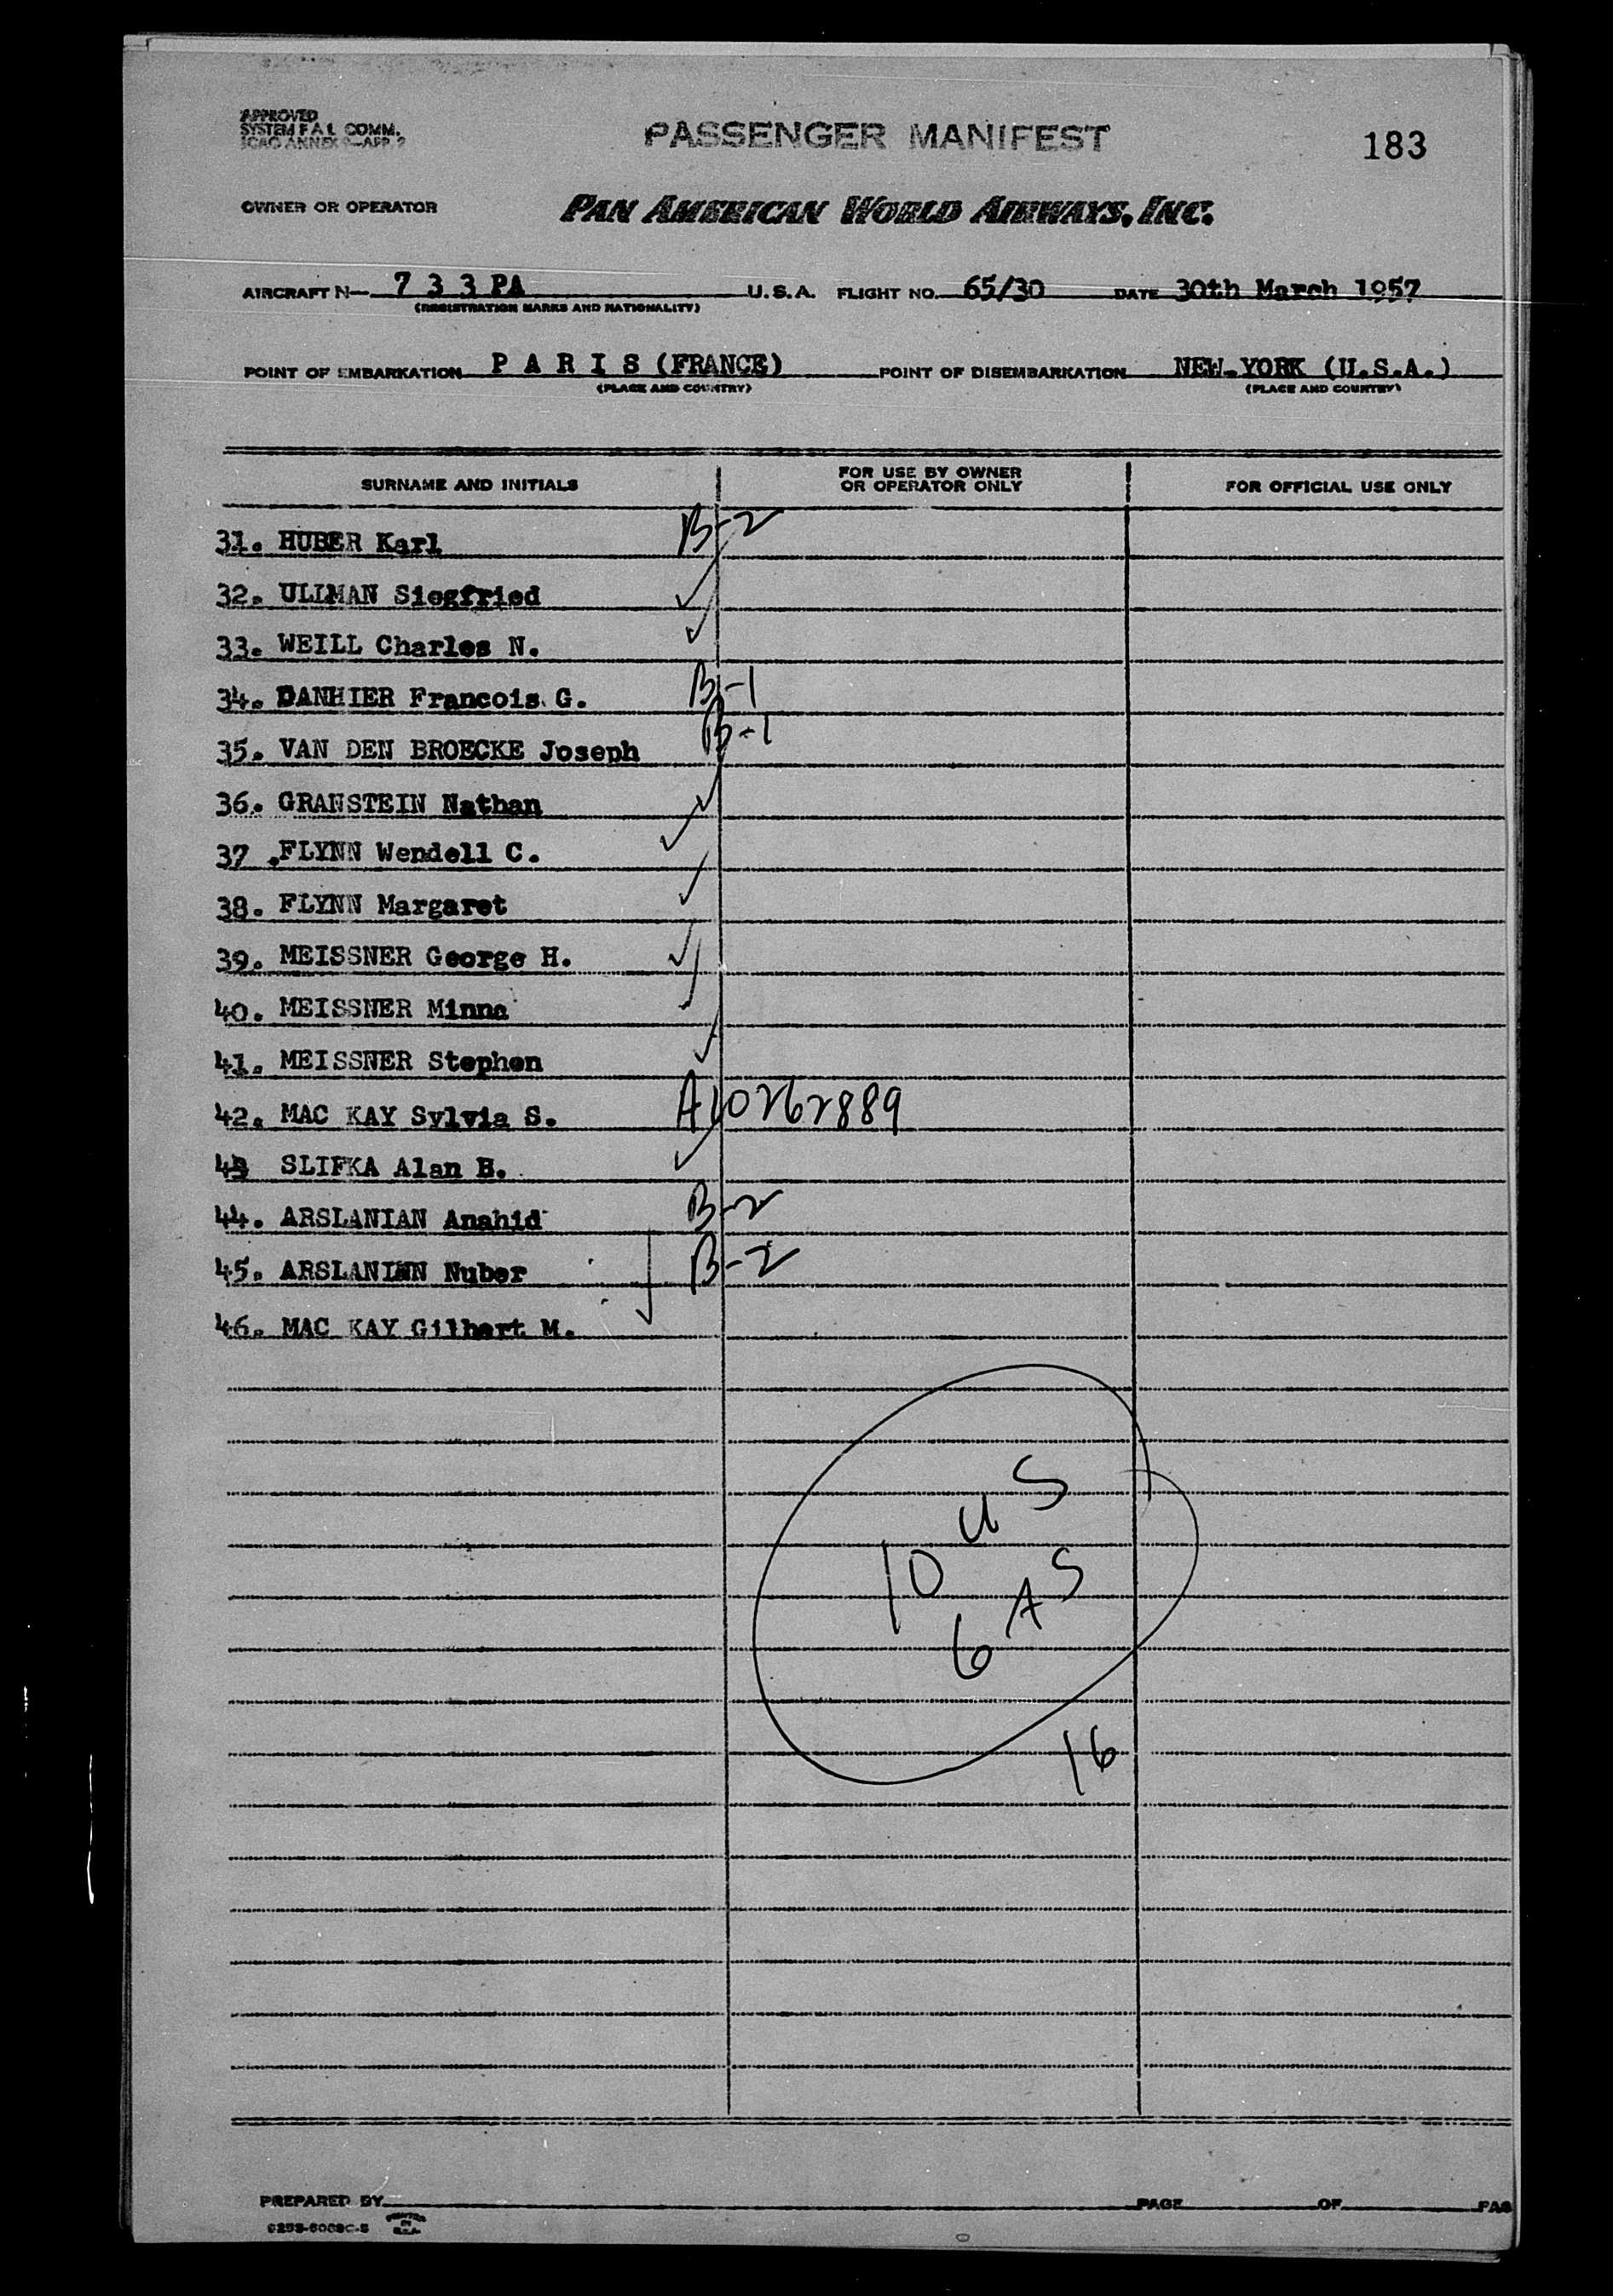 APPROVED
SYSTEM F A L COMM.
ICAO ANNEX 9-APP. 2
PASSENGER MANIFEST
183
OWNER OR OPERATOR
PAN AMERICAN WORLD AIRWAYS, INC.
AIRCRAFT N— 7 3 3 PA U.S.A. FLIGHT NO. 65/30 DATE 30th March 1957
(REGISTRATION MARKS AND NATIONALITY)
POINT OF EMBARKATION P A R I S (FRANCE) POINT OF DISEMBARKATION NEW-YORK (U.S.A.)
(PLACE AND COUNTRY) (PLACE AND COUNTRY)
SURNAME AND INITIALS FOR USE BY OWNER OR OPERATOR ONLY FOR OFFICIAL USE ONLY
31. HUBER Karl B-2
32. ULLMAN Siegfried ✓
33. WEILL Charles N. ✓
34. DANHIER Francois G. B-1
35. VAN DEN BROECKE Joseph B-1
36. GRANSTEIN Nathan ✓
37 .FLYNN Wendell C. ✓
38. FLYNN Margaret ✓
39. MEISSNER George H. ✓
40. MEISSNER Minna ✓
41. MEISSNER Stephen ✓
42. MAC KAY Sylvia S. A10262889
43 SLIFKA Alan B. ✓
44. ARSLANIAN Anahid B-2
45. ARSLANIAN Nuber B-2
46. MAC KAY Gilbert M. ✓
10 US
6 AS
16
PREPARED BY PAGE OF PAG
PRINTED IN U.S.A.